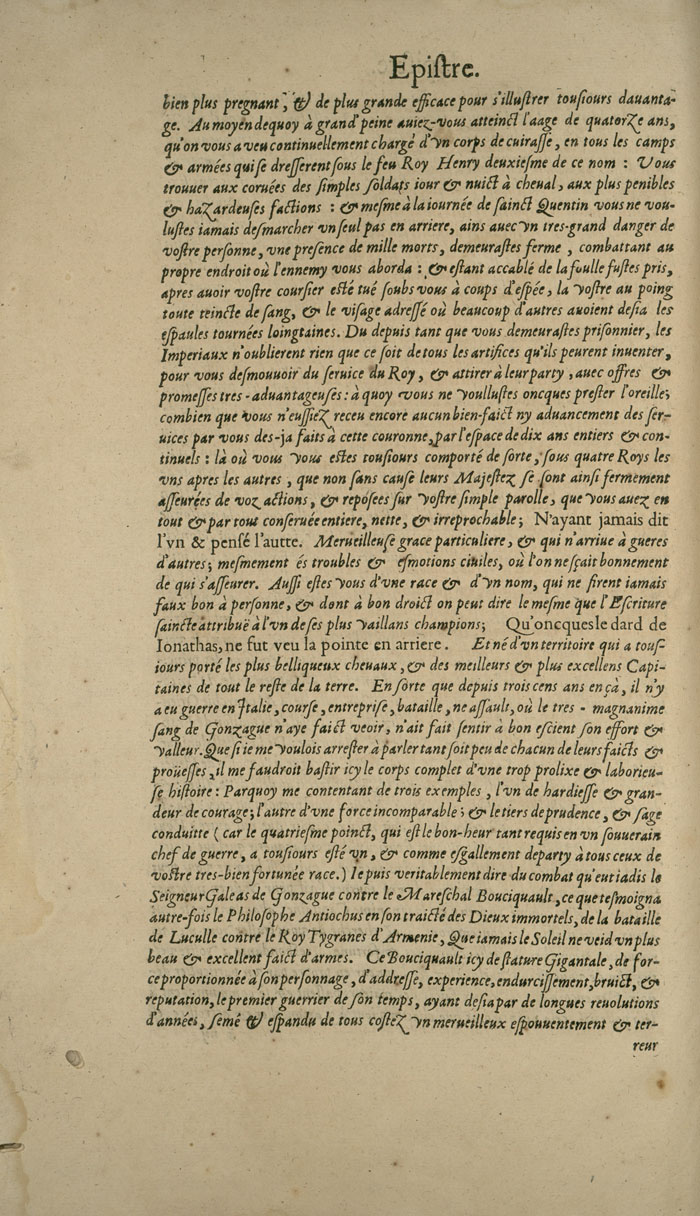 Epiſtre.
bien plus pregnant, & de plus grande efficace pour s'illuſtrer touſiours dauanta-
ge. Au moyen dequoy à grand' peine auiez-vous atteinct l'aage de quatorze ans,
qu'on vous a veu continuellement chargé d'vn corps de cuiraſſe, en tous les camps
& armées qui ſe dreſſerent ſous le feu Roy Henry deuxieſme de ce nom : Vous
trouuer aux coruées des ſimples ſoldats iour & nuict à cheual, aux plus penibles
& hazardeuſes factions : & meſme à la iournée de ſainct Quentin vous ne vou-
luſtes iamais deſmarcher vn ſeul pas en arriere, ains auec vn tres-grand danger de
voſtre perſonne, vne preſence de mille morts, demeuraſtes ferme, combattant au
propre endroit où l'ennemy vous aborda : & eſtant accablé de la foulle fuſtes pris,
apres auoir voſtre courſier eſté tué ſoubs vous à coups d'eſpée, la voſtre au poing
toute teincte de ſang, & le viſage adreſſé où beaucoup d'autres auoient deſia les
eſpaules tournées loingtaines. Du depuis tant que vous demeuraſtes priſonnier, les
Imperiaux n'oublierent rien que ce ſoit de tous les artifices qu'ils peurent inuenter,
pour vous deſmouuoir du ſeruice du Roy, & attirer à leur party, auec offres &
promeſſes tres-aduantageuſes : à quoy vous ne voulluſtes oncques preſter l'oreille;
combien que vous n'euſſiez receu encore aucun bien-faict ny aduancement des ſer-
uices par vous des-ja faits à cette couronne, par l'eſpace de dix ans entiers & con-
tinuels : là où vous vous eſtes touſiours comporté de ſorte, ſous quatre Roys les
vns apres les autres, que non ſans cauſe leurs Majeſtez ſe ſont ainſi fermement
aſſeurées de voz actions, & repoſées ſur voſtre ſimple parolle, que vous auez en
tout & par tout conſeruée entiere, nette, & irreprochable; N'ayant jamais dit
l'vn & penſé l'autre. Merueilleuſe grace particuliere, & qui n'arriue à gueres
d'autres; meſmement és troubles & eſmotions ciuiles, où l'on ne ſçait bonnement
de qui s'aſſeurer. Auſſi eſtes vous d'vne race & d'vn nom, qui ne firent iamais
faux bon à perſonne, & dont à bon droict on peut dire le meſme que l'Eſcriture
ſaincte attribuë à l'vn de ſes plus vaillans champions; Qu'oncques le dard de
Ionathas, ne fut veu la pointe en arriere. Et né d'vn territoire qui a touſ-
iours porté les plus belliqueux cheuaux, & des meilleurs & plus excellens Capi-
taines de tout le reſte de la terre. En ſorte que depuis trois cens ans en çà, il n'y
a eu guerre en Italie, courſe, entrepriſe, bataille, ne aſſault, où le tres-magnanime
ſang de Gonzague n'aye faict veoir, n'ait fait ſentir à bon eſcient ſon effort &
valleur. Que ſi ie me voulois arreſter à parler tant ſoit peu de chacun de leurs faicts &
proüeſſes, il me faudroit baſtir icy le corps complet d'vne trop prolixe & laborieu-
ſe hiſtoire : Parquoy me contentant de trois exemples, l'vn de hardieſſe & gran-
deur de courage; l'autre d'vne force incomparable; & le tiers de prudence, & ſage
conduitte ( car le quatrieſme poinct, qui eſt le bon-heur tant requis en vn ſouuerain
chef de guerre, a touſiours eſté vn, & comme eſgallement departy à tous ceux de
voſtre tres-bien fortunée race. ) Ie puis veritablement dire du combat qu'eut iadis le
Seigneur Galeas de Gonzague contre le Mareſchal Bouciquault, ce que teſmoigna
autre-fois le Philoſophe Antiochus en ſon traicté des Dieux immortels, de la bataille
de Luculle contre le Roy Tygranes d'Armenie, Que iamais le Soleil ne veid vn plus
beau & excellent faict d'armes. Ce Bouciquault icy de ſtature Gigantale, de for-
ce proportionnée à ſon perſonnage, d'addreſſe, experience, endurciſſement, bruict, &
reputation, le premier guerrier de ſon temps, ayant deſia par de longues reuolutions
d'années, ſemé & eſpandu de tous coſtez vn merueilleux eſpouuentement & ter-
reur